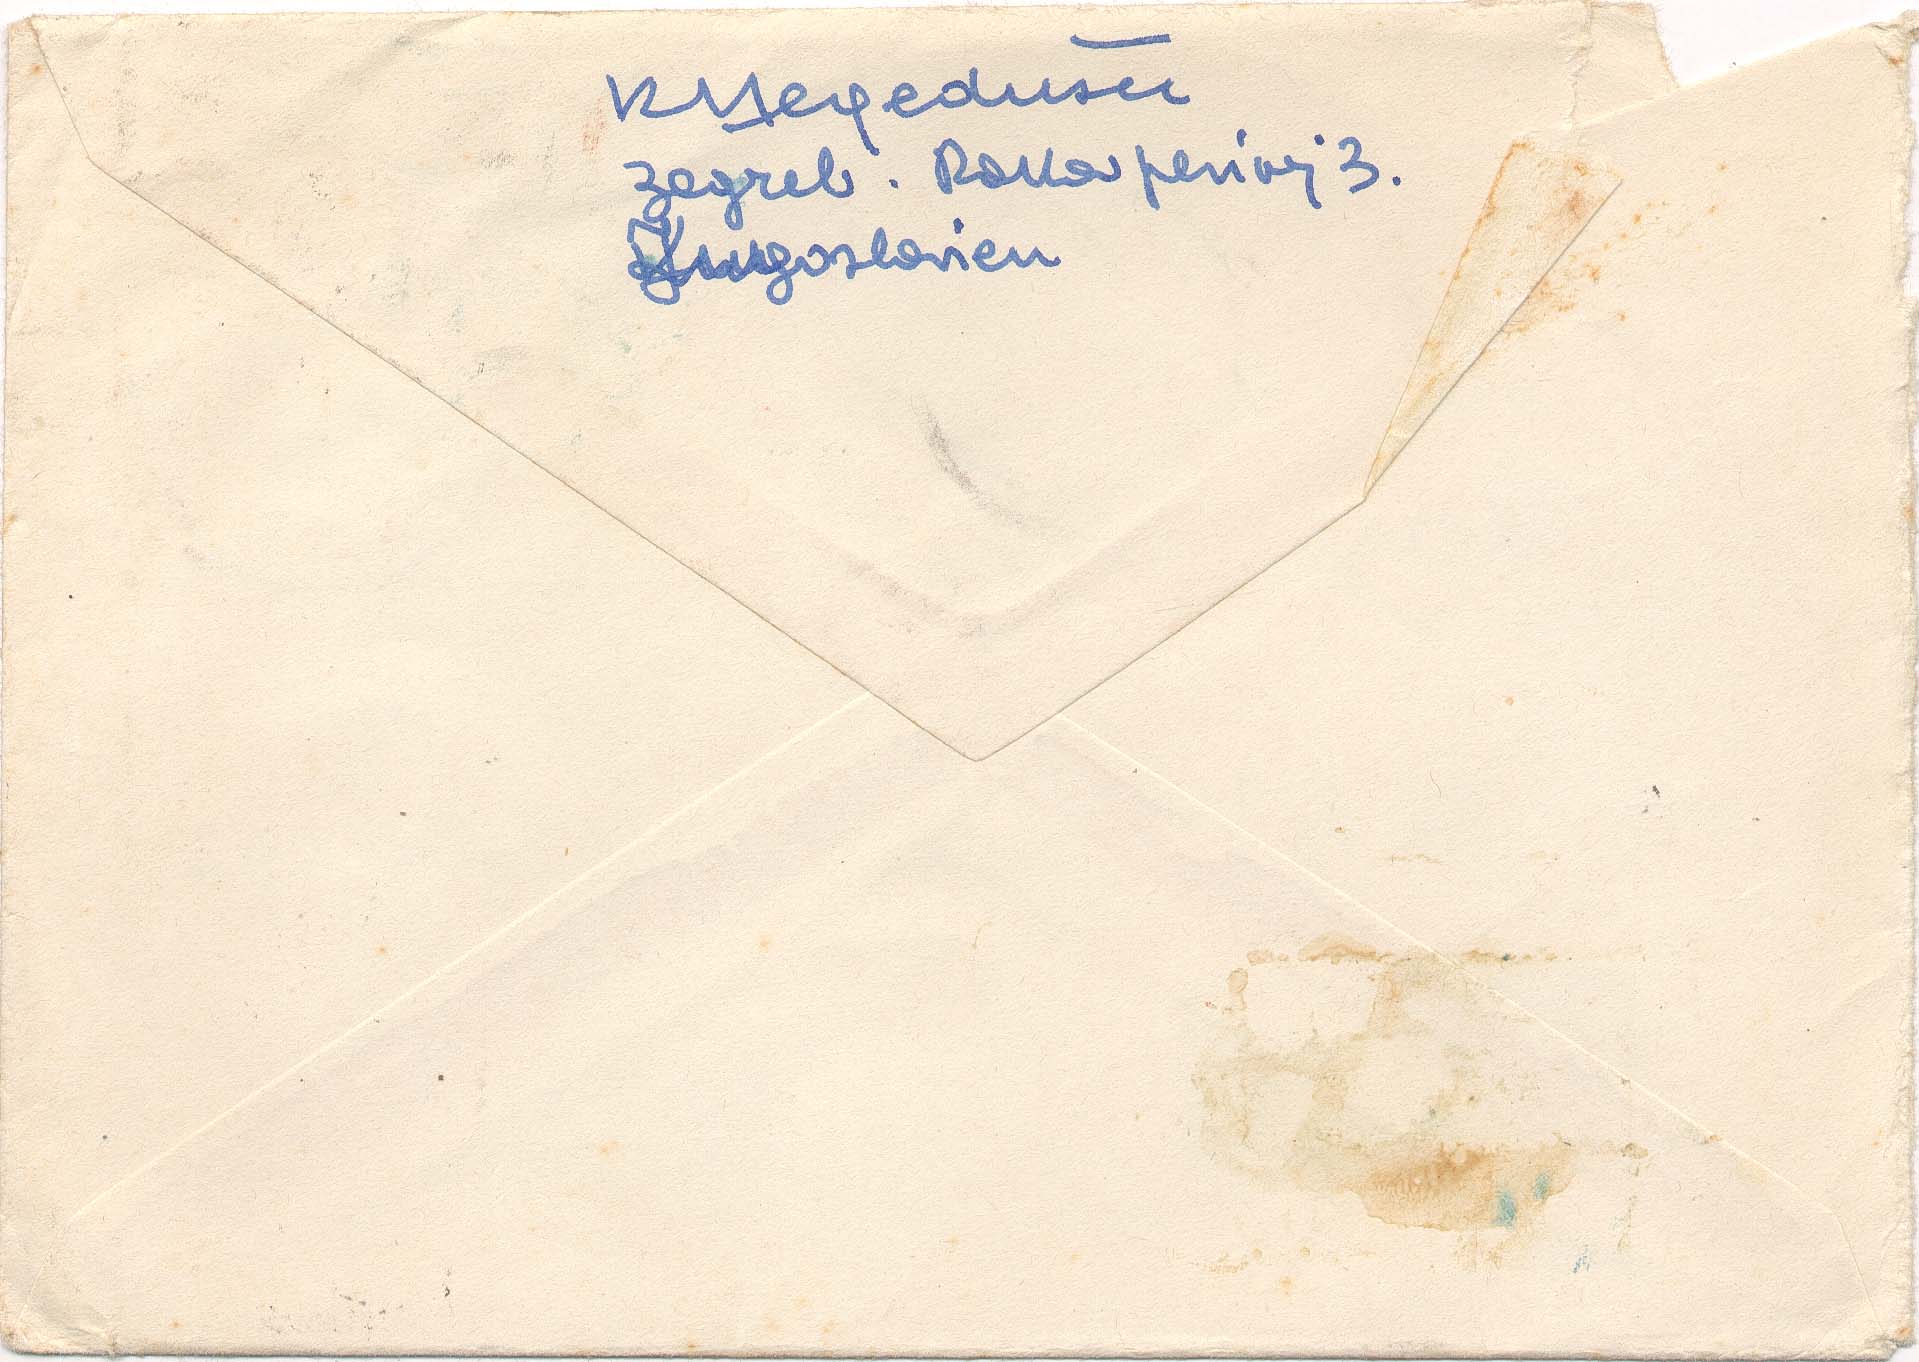 K Hegedušić
Zagreb. Rokov perivoj 3.
Jugoslavien